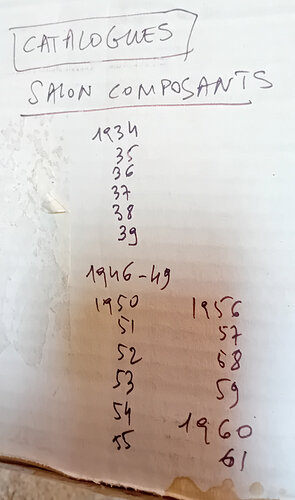 CATALOGUES
SALON COMPOSANTS
1934
35
36
37
38
39
1946-49
1950
51
52
53
54
55
1956
57
58
59
1960
61